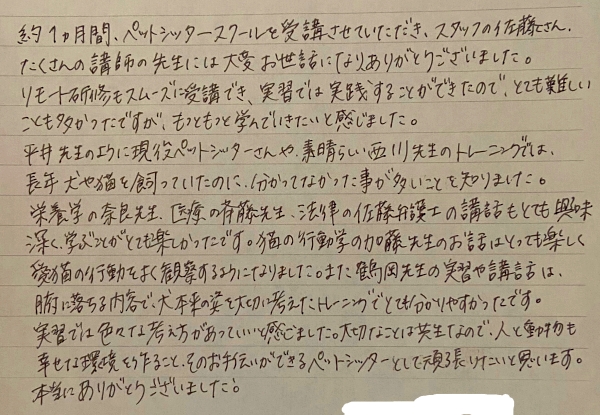 約1ヵ月間、ペットシッタースクールを受講させていただき、スタッフの佐藤さん、
たくさんの講師の先生には大変お世話になりありがとうございました。
リモート研修もスムーズに受講でき、実習では実践することができたので、とても難しい
ことも多かったですが、もっともっと学んでいきたいと感じました。
平井先生のように現役ペットシッターさんや、素晴らしい西川先生のトレーニングでは、
長年犬や猫を飼っていたのに、分かってなかった事が多いことを知りました。
栄養学の奈良先生、医療の斉藤先生、法律の佐藤弁護士の講話もとても興味
深く、学ぶことがとても楽しかったです。猫の行動学の加藤先生のお話はとっても楽しく
愛猫の行動をよく観察するようになりました。また鶴岡先生の実習や講話は、
腑に落ちる内容で、犬本来の姿を大切に考えたトレーニングでとても分かりやすかったです。
実習では色々な考え方があっていいと感じました。大切なことは共生なので、人と動物も
幸せな環境を作ること、そのお手伝いができるペットシッターとして頑張りたいと思います。
本当にありがとうございました。